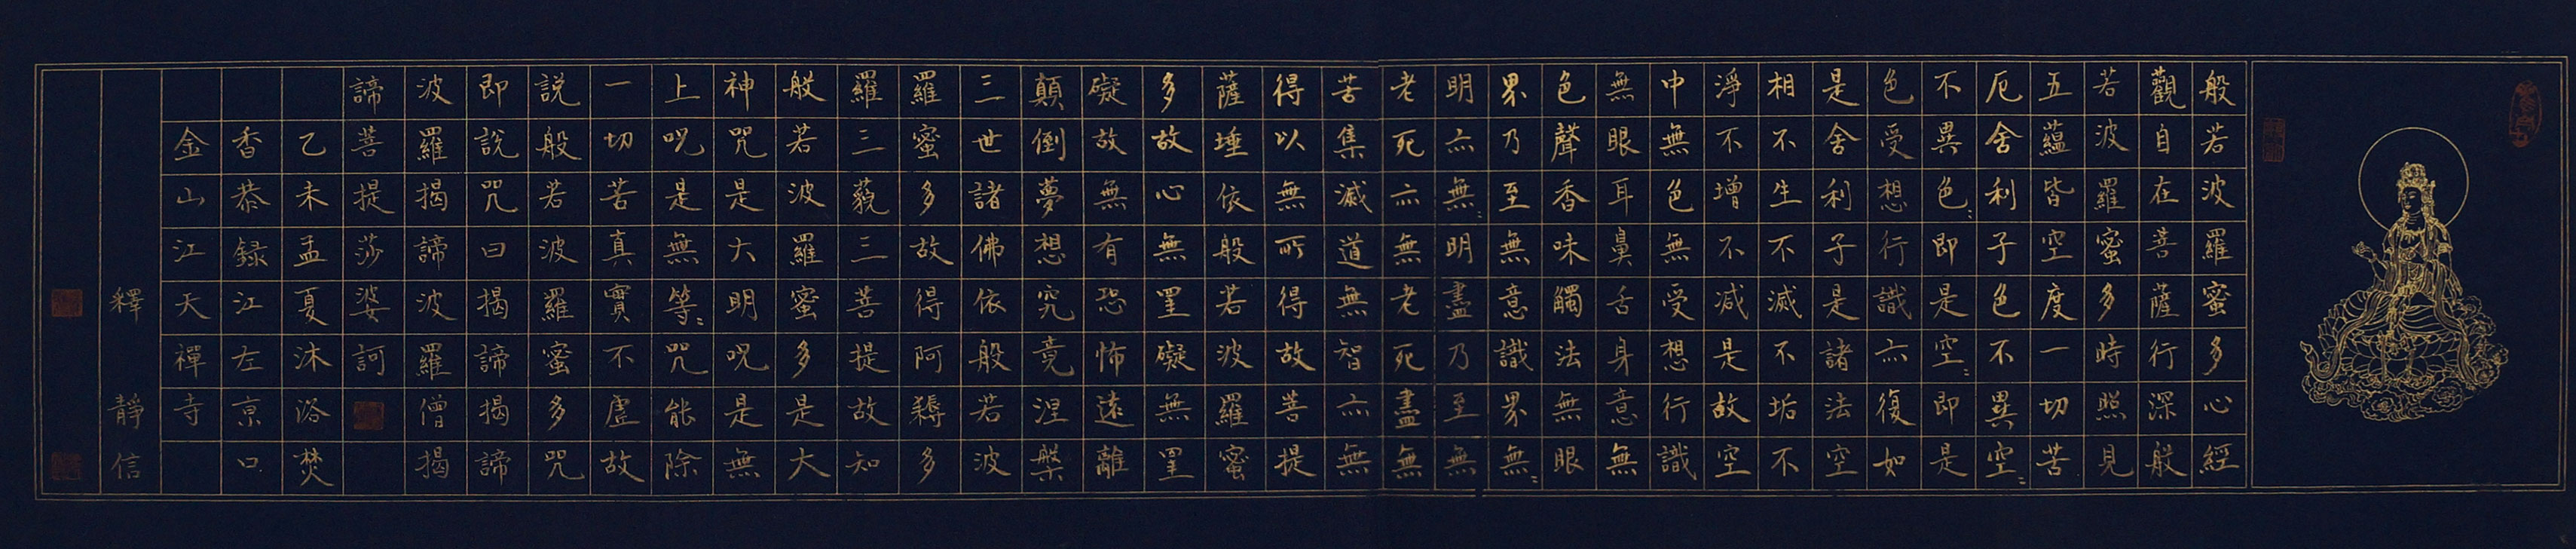 般若波羅蜜多心經
觀自在菩薩行深般
若波羅蜜多時照見
五蘊皆空度一切苦
厄舍利子色不異空〻
不異色〻即是空〻即是
色受想行識亦復如
是舍利子是諸法空
相不生不滅不垢不
淨不增不减是故空
中無色無受想行識
無眼耳鼻舌身意無
色聲香味觸法無眼
界乃至無意識界無〻
明亦無〻明盡乃至無
老死亦無老死盡無
苦集滅道無智亦無
得以無所得故菩提
薩埵依般若波羅蜜
多故心無罣礙無罣
礙故無有恐怖遠離
顛倒夢想究竟涅槃
三世諸佛依般若波
羅蜜多故得阿耨多
羅三藐三菩提故知
般若波羅蜜多是大
神咒是大明呪是無
上呪是無等〻咒能除
一切苦真實不虛故
說般若波羅蜜多咒
即說咒曰揭諦揭諦
波羅揭諦波羅僧揭
諦菩提莎婆訶
乙未孟夏沐浴焚
香恭録江左京口
金山江天禪寺
釋靜信